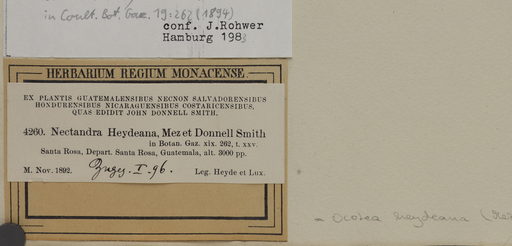 in Coult. Bot. Gaz. 19:262 (1894)
conf. J.Rohwer
Hamburg 1983
HERBARIUM REGIUM MONACENSE.
EX PLANTIS GUATEMALENSIBUS NECNON SALVADORENSIBUS
HONDURENSIBUS NICARAGUENSIBUS COSTARICENSIBUS,
QUAS EDIDIT JOHN DONNELL SMITH.
4260. Nectandra Heydeana, Mez et Donnell Smith
in Botan. Gaz. xix. 262, t. xxv.
Santa Rosa, Depart. Santa Rosa, Guatemala, alt. 3000 pp.
M. Nov. 1892.
I. 96.
Leg. Heyde et Lux.
Ocotea heydeana (Mez